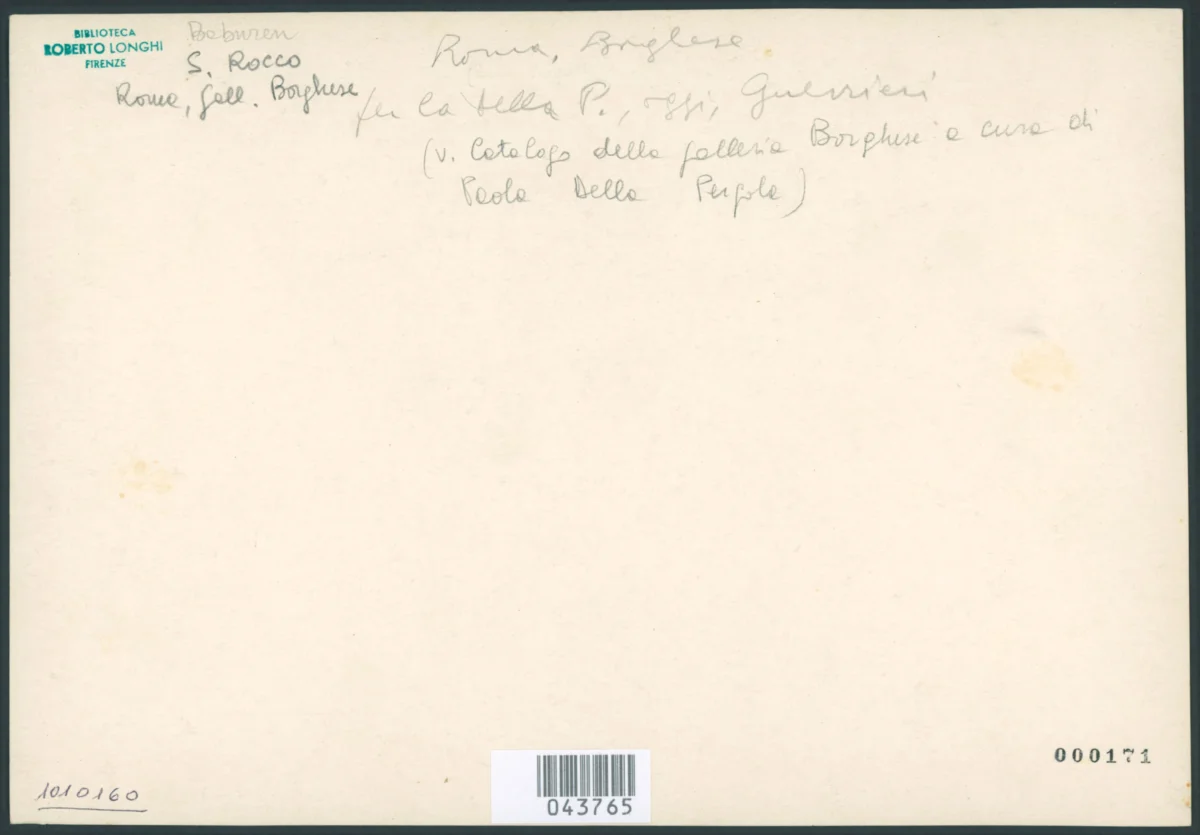 BIBLIOTECA
ROBERTO LONGHI
FIRENZE
Baburen
S. Rocco
Roma, Gall. Borghese
Roma, Borghese
per la Della P., oggi, Guerrieri
(v. Catalogo della galleria Borghese a cura di
Paola Della Pergola)
000171
1010160
043765